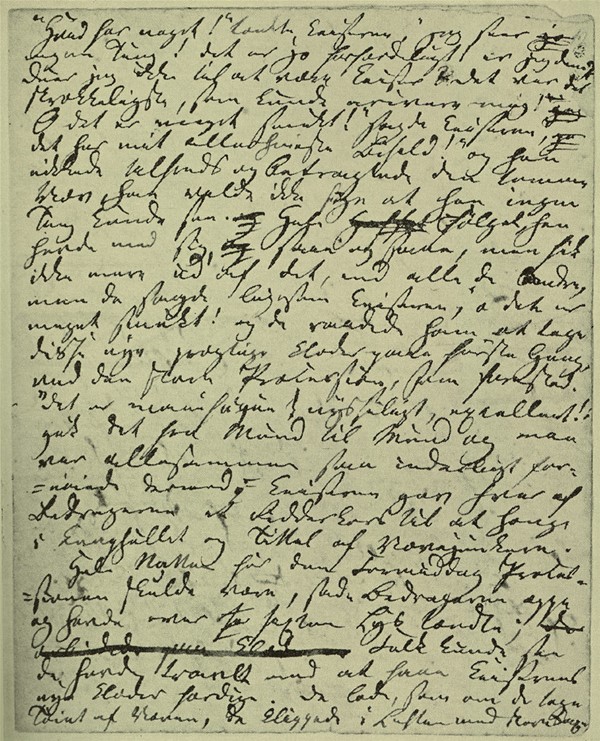 "Hvad for noget!" tænkte Keiseren, "jeg seer
ingen Ting! det er jo forfærdeligt er jeg dum
duer jeg ikke til at være Keiser? det var det
skrækkeligste, som kunde arrivere mig!"
O det er meget smukt!" sagde Keiseren,
det har mit allerhøieste Bifald!" og han
nikkede tilfreds og betragtede den tomme
Væv, han vilde ikke sige at han ingen
Ting kunde see. Hele Følget, han
havde med sig, saae og saae, men fik
ikke mere ud af det, end alle de Andre,
men de sagde ligesom Keiseren, "o det er
meget smukt! og de raadede ham at tage
disse nye prægtige Klæder paa første Gang
ved den store Procession, som forestod.
"det er magnifique! nysseligt, excellent!"
gik det fra Mund til Mund og man
var allesammen saa inderligt for=
=nøiede dermed. Keiseren gav hver af
Bedragerne et Ridderkors til at hænge
i Knaphullet og Tittel af Vævejunkere.
Hele Natten før den Formiddag Proces=
=sionen skulde være, sade Bedragerne oppe
og havde over sexten Lys tændte.
Folk kunde see
de havde travlt med at faae Keiserens
nye Klæder færdige. De lode, som om de toge
Tøiet af Væven, de klippede i Luften med store Saxe